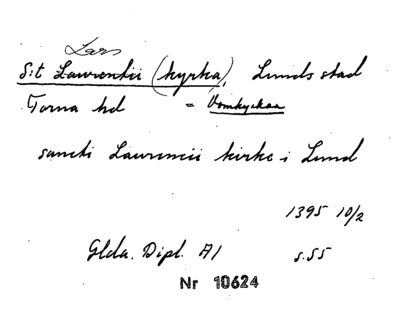 Lars
S:t Lawrentii (kyrka), Lunds stad
Torna hd = Domkyrkan
sancti Lawrencii kirke i Lund
1395 10/2
Glda. Dipl. A1 s.55
Nr 10624